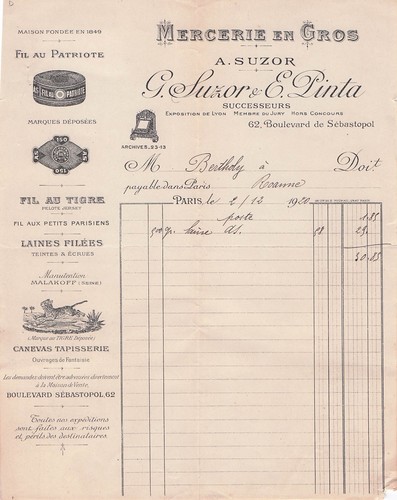 MAISON FONDÉE EN 1849
FIL AU PATRIOTE
FIL AU PATRIOTE
MARQUES DÉPOSÉES
150
150
FIL AU TIGRE
PELOTE JARSET
FIL AUX PETITS PARISIENS
LAINES FILÉES
TEINTES & ÉCRUES
Manutention
MALAKOFF (SEINE)
(Marque au TIGRE Déposée)
CANEVAS TAPISSERIE
Ouvrages de Fantaisie
Les demandes doivent être adressées directement
à la Maison de Vente,
BOULEVARD SÉBASTOPOL, 62
Toutes nos expéditions
sont faites aux risques
et périls des destinataires
MERCERIE EN GROS
A. SUZOR
G. Suzor & E. Pinta
SUCCESSEURS
EXPOSITION DE LYON MEMBRE DU JURY HORS CONCOURS
62, Boulevard de Sébastopol
ARCHIVES_23-13
M Bertholy à Doit
payable dans Paris Roanne
PARIS, le 2/12 1920
poste 1.85
500 gr laine 58 29.
30.85